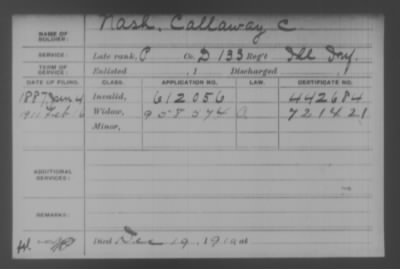 NAME OF SOLDIER: Nash, Callaway C
SERVICE: Late rank, P Co. D 133 Reg't Ill Inf.
TERM OF SERVICE: Enlisted , 1 Discharged , 1
DATE OF FILING. CLASS. APPLICATION NO. LAW. CERTIFICATE NO.
1887 Jan 4 Invalid, 612056 442684
1911 Feb 6 Widow, 958574 721421
Minor,
ADDITIONAL SERVICES:
REMARKS:
Died Dec 19, 1910 at